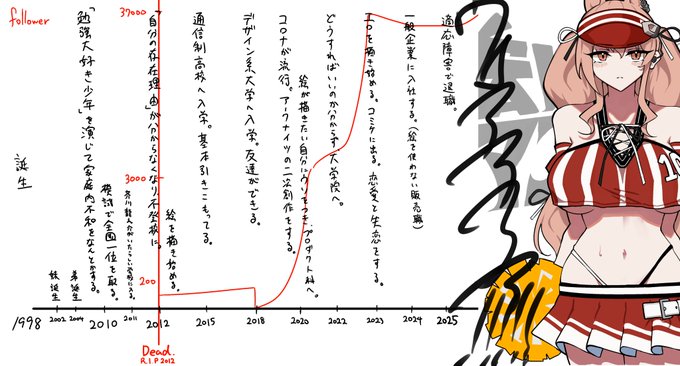 follower
37000
3000
200
誕生
妹誕生
弟誕生
「勉強大好き少年」を演じて家庭内不和をなんとかする。
模試で全国一位を取る。
「自分の存在理由」が分からなくなり不登校に。
絵を描き始める。
通信制高校へ入学。基本引きこもってる。
デザイン系大学へ入学。友達ができる。
コロナが流行。アークナイツの二次創作をする。
絵が描きたい自分にウソをつき、プロダクト科へ。
どうすればいいのか分からず大学院へ。
エロを描き始める。コミケに出る。恋愛と失恋をする。
一般企業に入社する。(絵を使わない販売職)
適応障害で退職。
10
1998 2002 2004 2010 2011 2012 2015 2018 2020 2022 2023 2024 2025
Dead.
R.I.P 2012